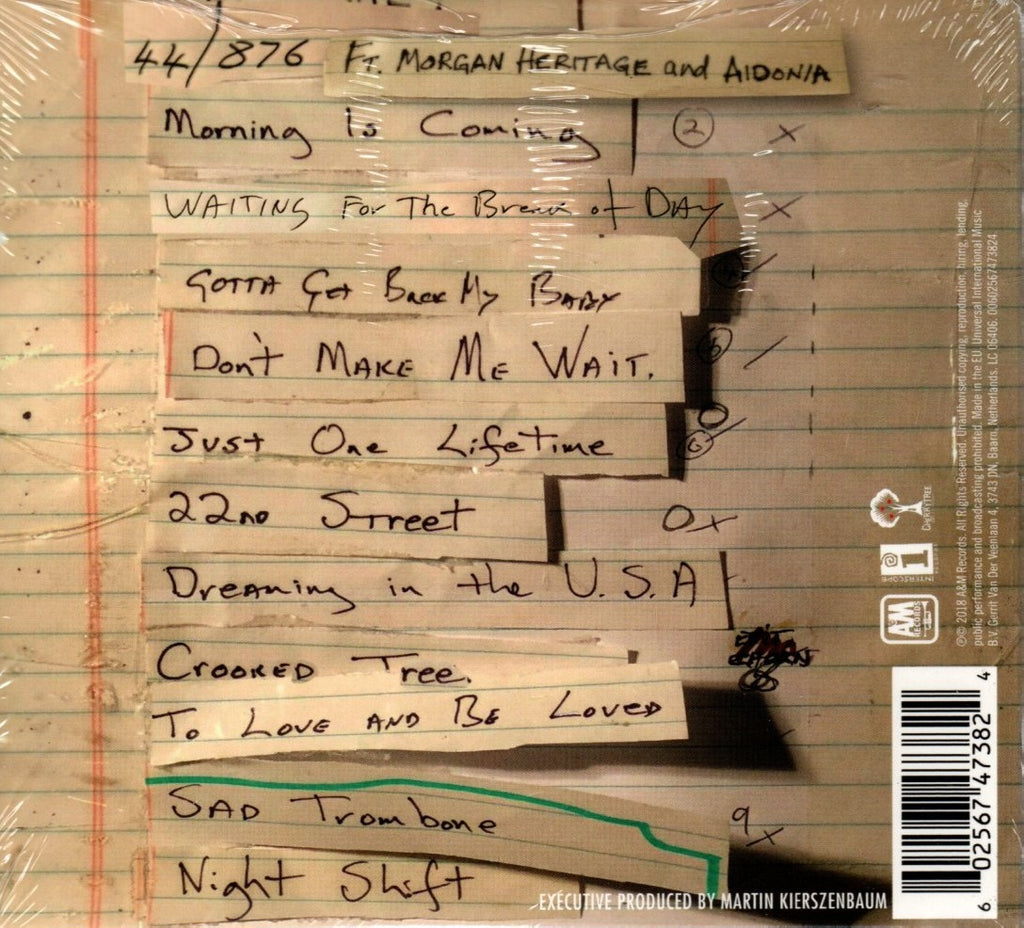 44/876 FT. MORGAN HERITAGE and AIDONIA
Morning Is Coming 2 x
WAITING For The Break of DAY x
GOTTA Get Back My BABY
Don't MAKE ME WAIT.
Just One Lifetime 6
22ND Street 0x
Dreaming in the U.S.A
CROOKED Tree.
To LOVE AND BE LOVED
SAD Trombone 9 x
Night Shift
EXECUTIVE PRODUCED BY MARTIN KIERSZENBAUM
CHERRYTREE
INTERSCOPE
A&M RECORDS
℗© 2018 A&M Records. All Rights Reserved. Unauthorised copying, reproduction, hiring, lending,
public performance and broadcasting prohibited. Made in the EU. Universal International Music
B.V. Gerrit Van Der Veenlaan 4, 3743 DN, Baarn, Netherlands. LC 06406. 00602567473824
6 02567 47382 4